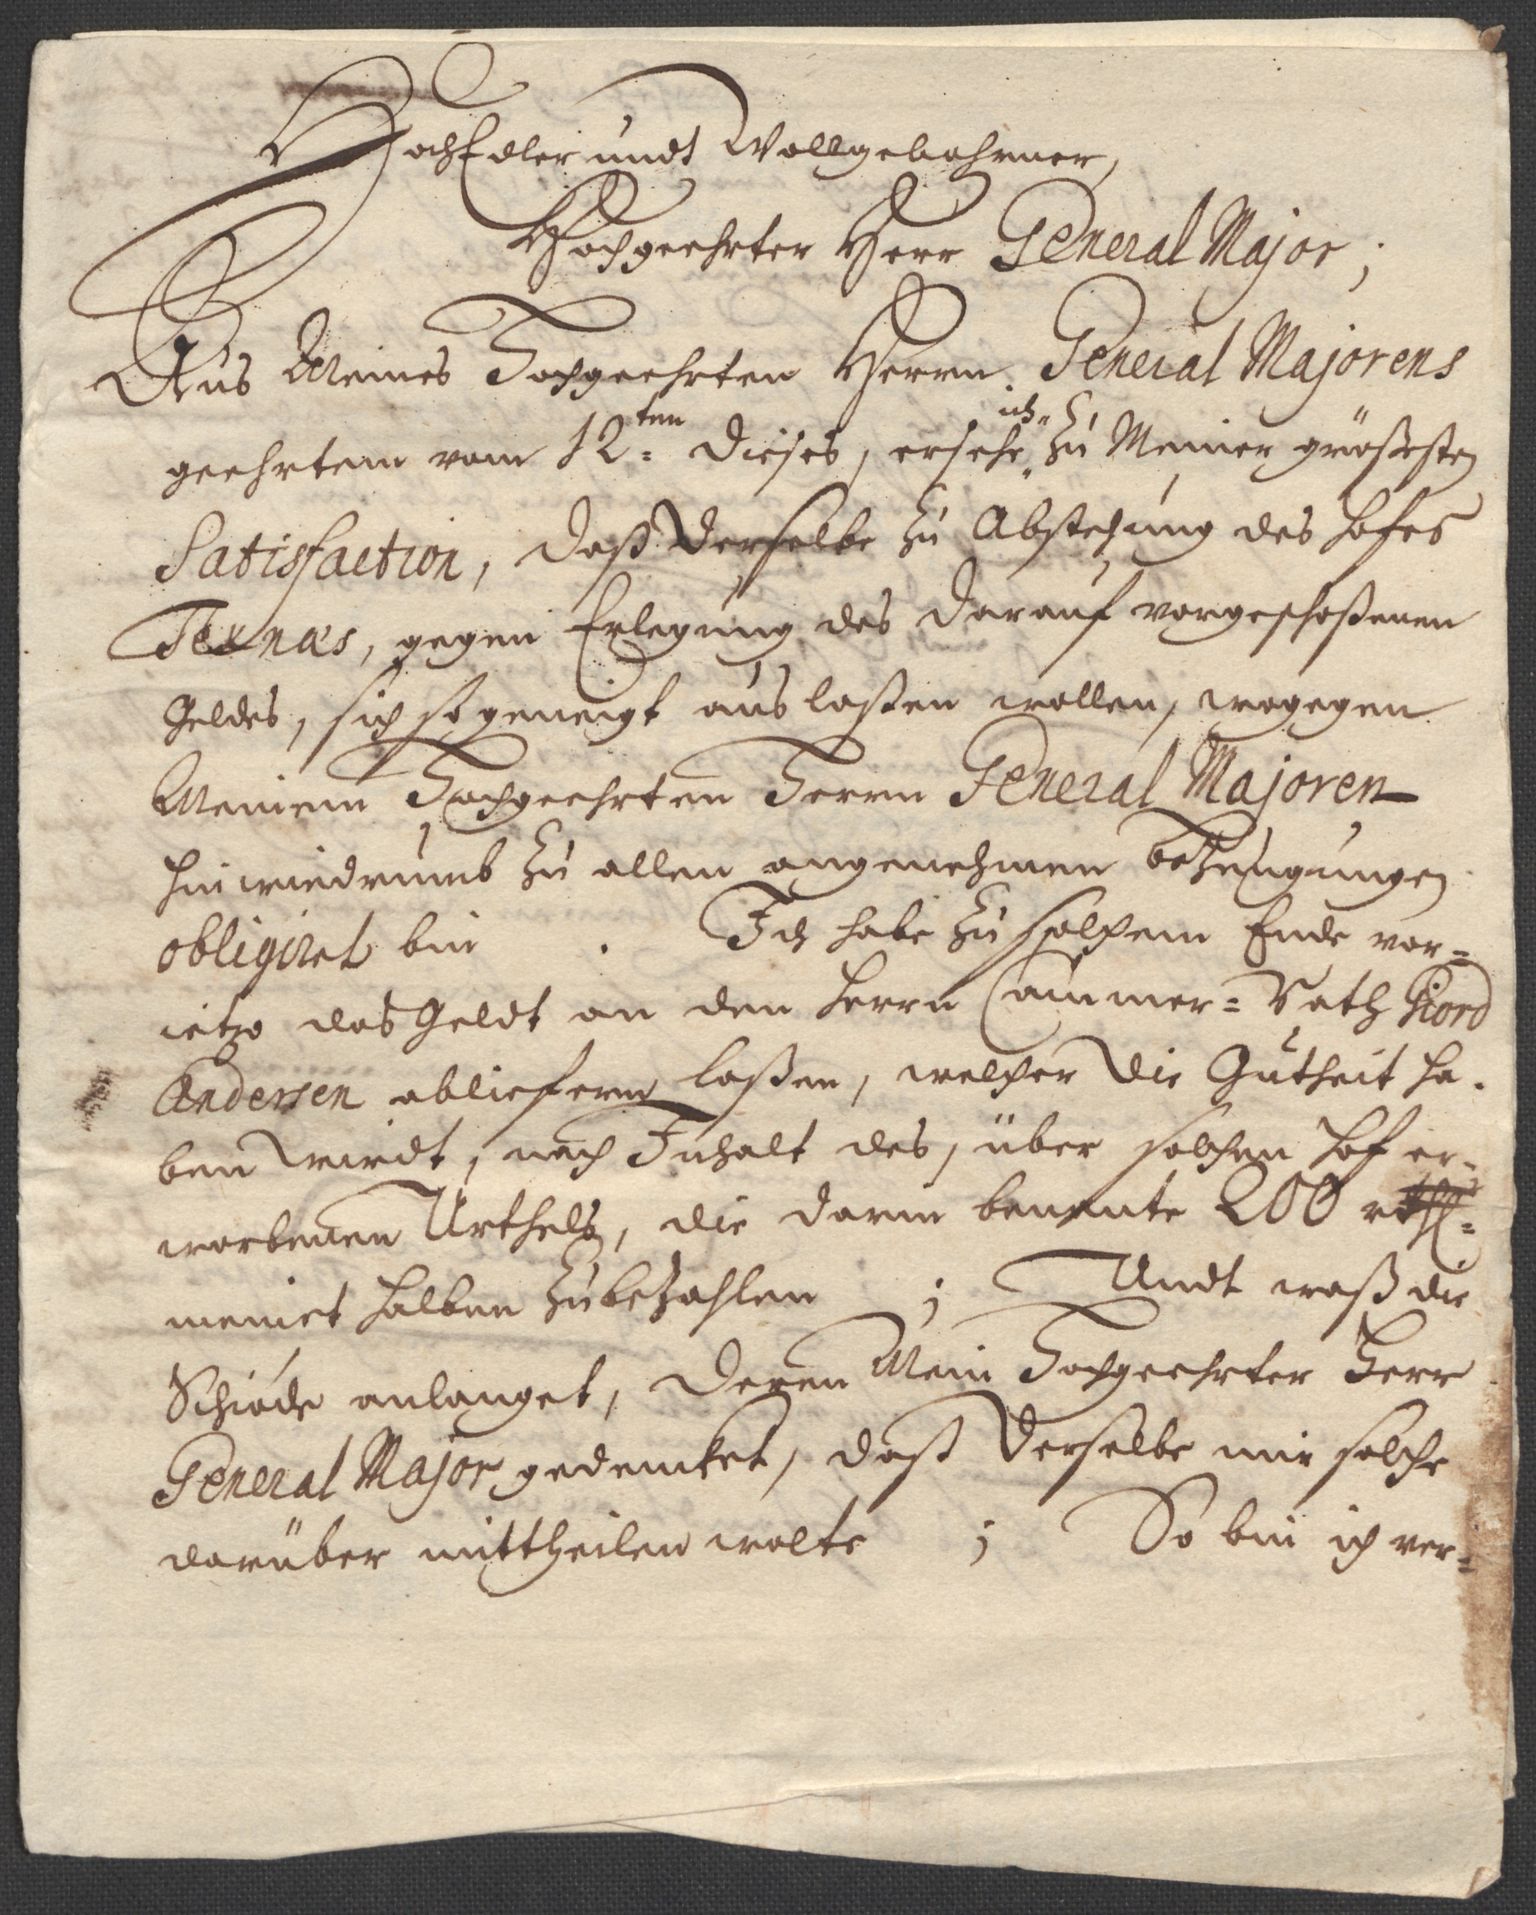 HochEdler undt Wollgebohrner,
Hochgeehrter Herr General Major;
Aus Meines Hochgeehrten Herrn General Majorens
geehrtem vom 12ten dieses, ersehe ich zu Meiner größesten
Satisfaction, daß Derselbe zu Abstehung des Hofes
gegen Erlegung des darauf vorgeschoßenen
Geldes, sich so geneigt auslaßen wollen, wogegen
Meinem Hochgeehrten Herrn General Majoren
hinwiedrumb zu allen angenehmen bezeugungen
obligiret bin . Ich habe zu solchem Ende vor=
ietzo das Geldt an den Herrn Cammer=Rath Giord
Andersen abliefern laßen, welcher die Gutheit ha=
ben wirdt, nach Inhalt des, über solchen Hof er=
worbenen Urthels, die darin benente 200
meinet halben zubezahlen ; Undt waß die
Schiöde anlanget, deren Mein Hochgeehrter Herr
General Major gedencket, daß Derselbe mir solche
darüber mittheilen wolte ; So bin ich ver=